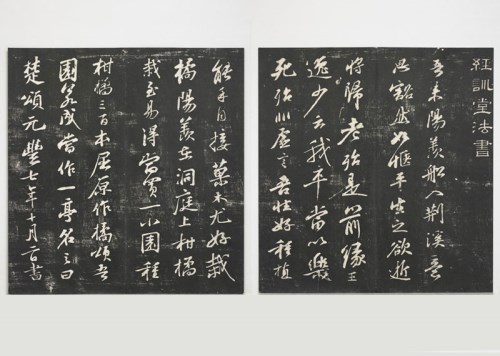 經訓堂法書
吾来陽羨船入荊溪意
思豁然如愜平生之欲逝
將歸老殆是前緣王
逸少云我卒當以樂
死殆非虛言吾性好種植
能手自接菓木尤好栽
橘陽羨在洞庭上柑橘
栽至易得當買一小園種
柑橘三百本屈原作橘頌吾
園若成當作一亭名之曰
楚頌元豐七年十月二日書